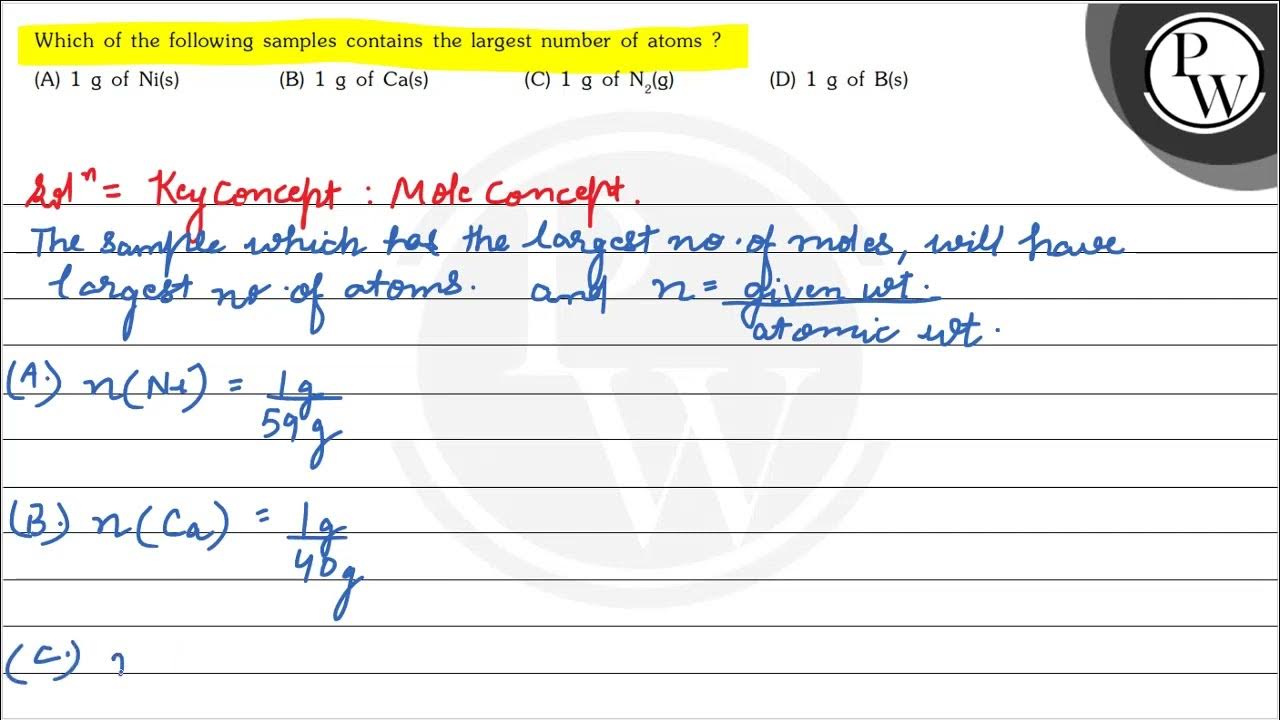 Which of the following samples contains the largest number of atoms ?
(A) 1 g of Ni(s) (B) 1 g of Ca(s) (C) 1 g of N₂(g) (D) 1 g of B(s)
P
W
Solⁿ = Key Concept : Mole Concept.
The sample which has the largest no. of moles, will have
largest no. of atoms. and n = given wt.
atomic wt.
(A.) n(Ni) = 1g
59 g
(B.) n(Ca) = 1g
40g
(C.)
P
W